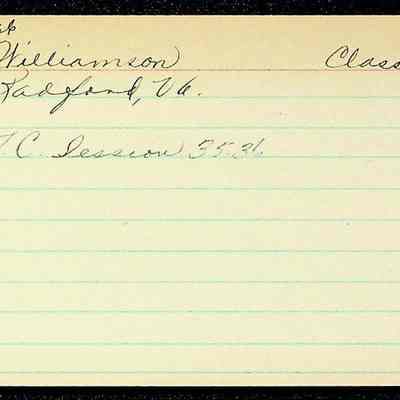 Williamson Class
Radford, Va.
C. Session 35-36